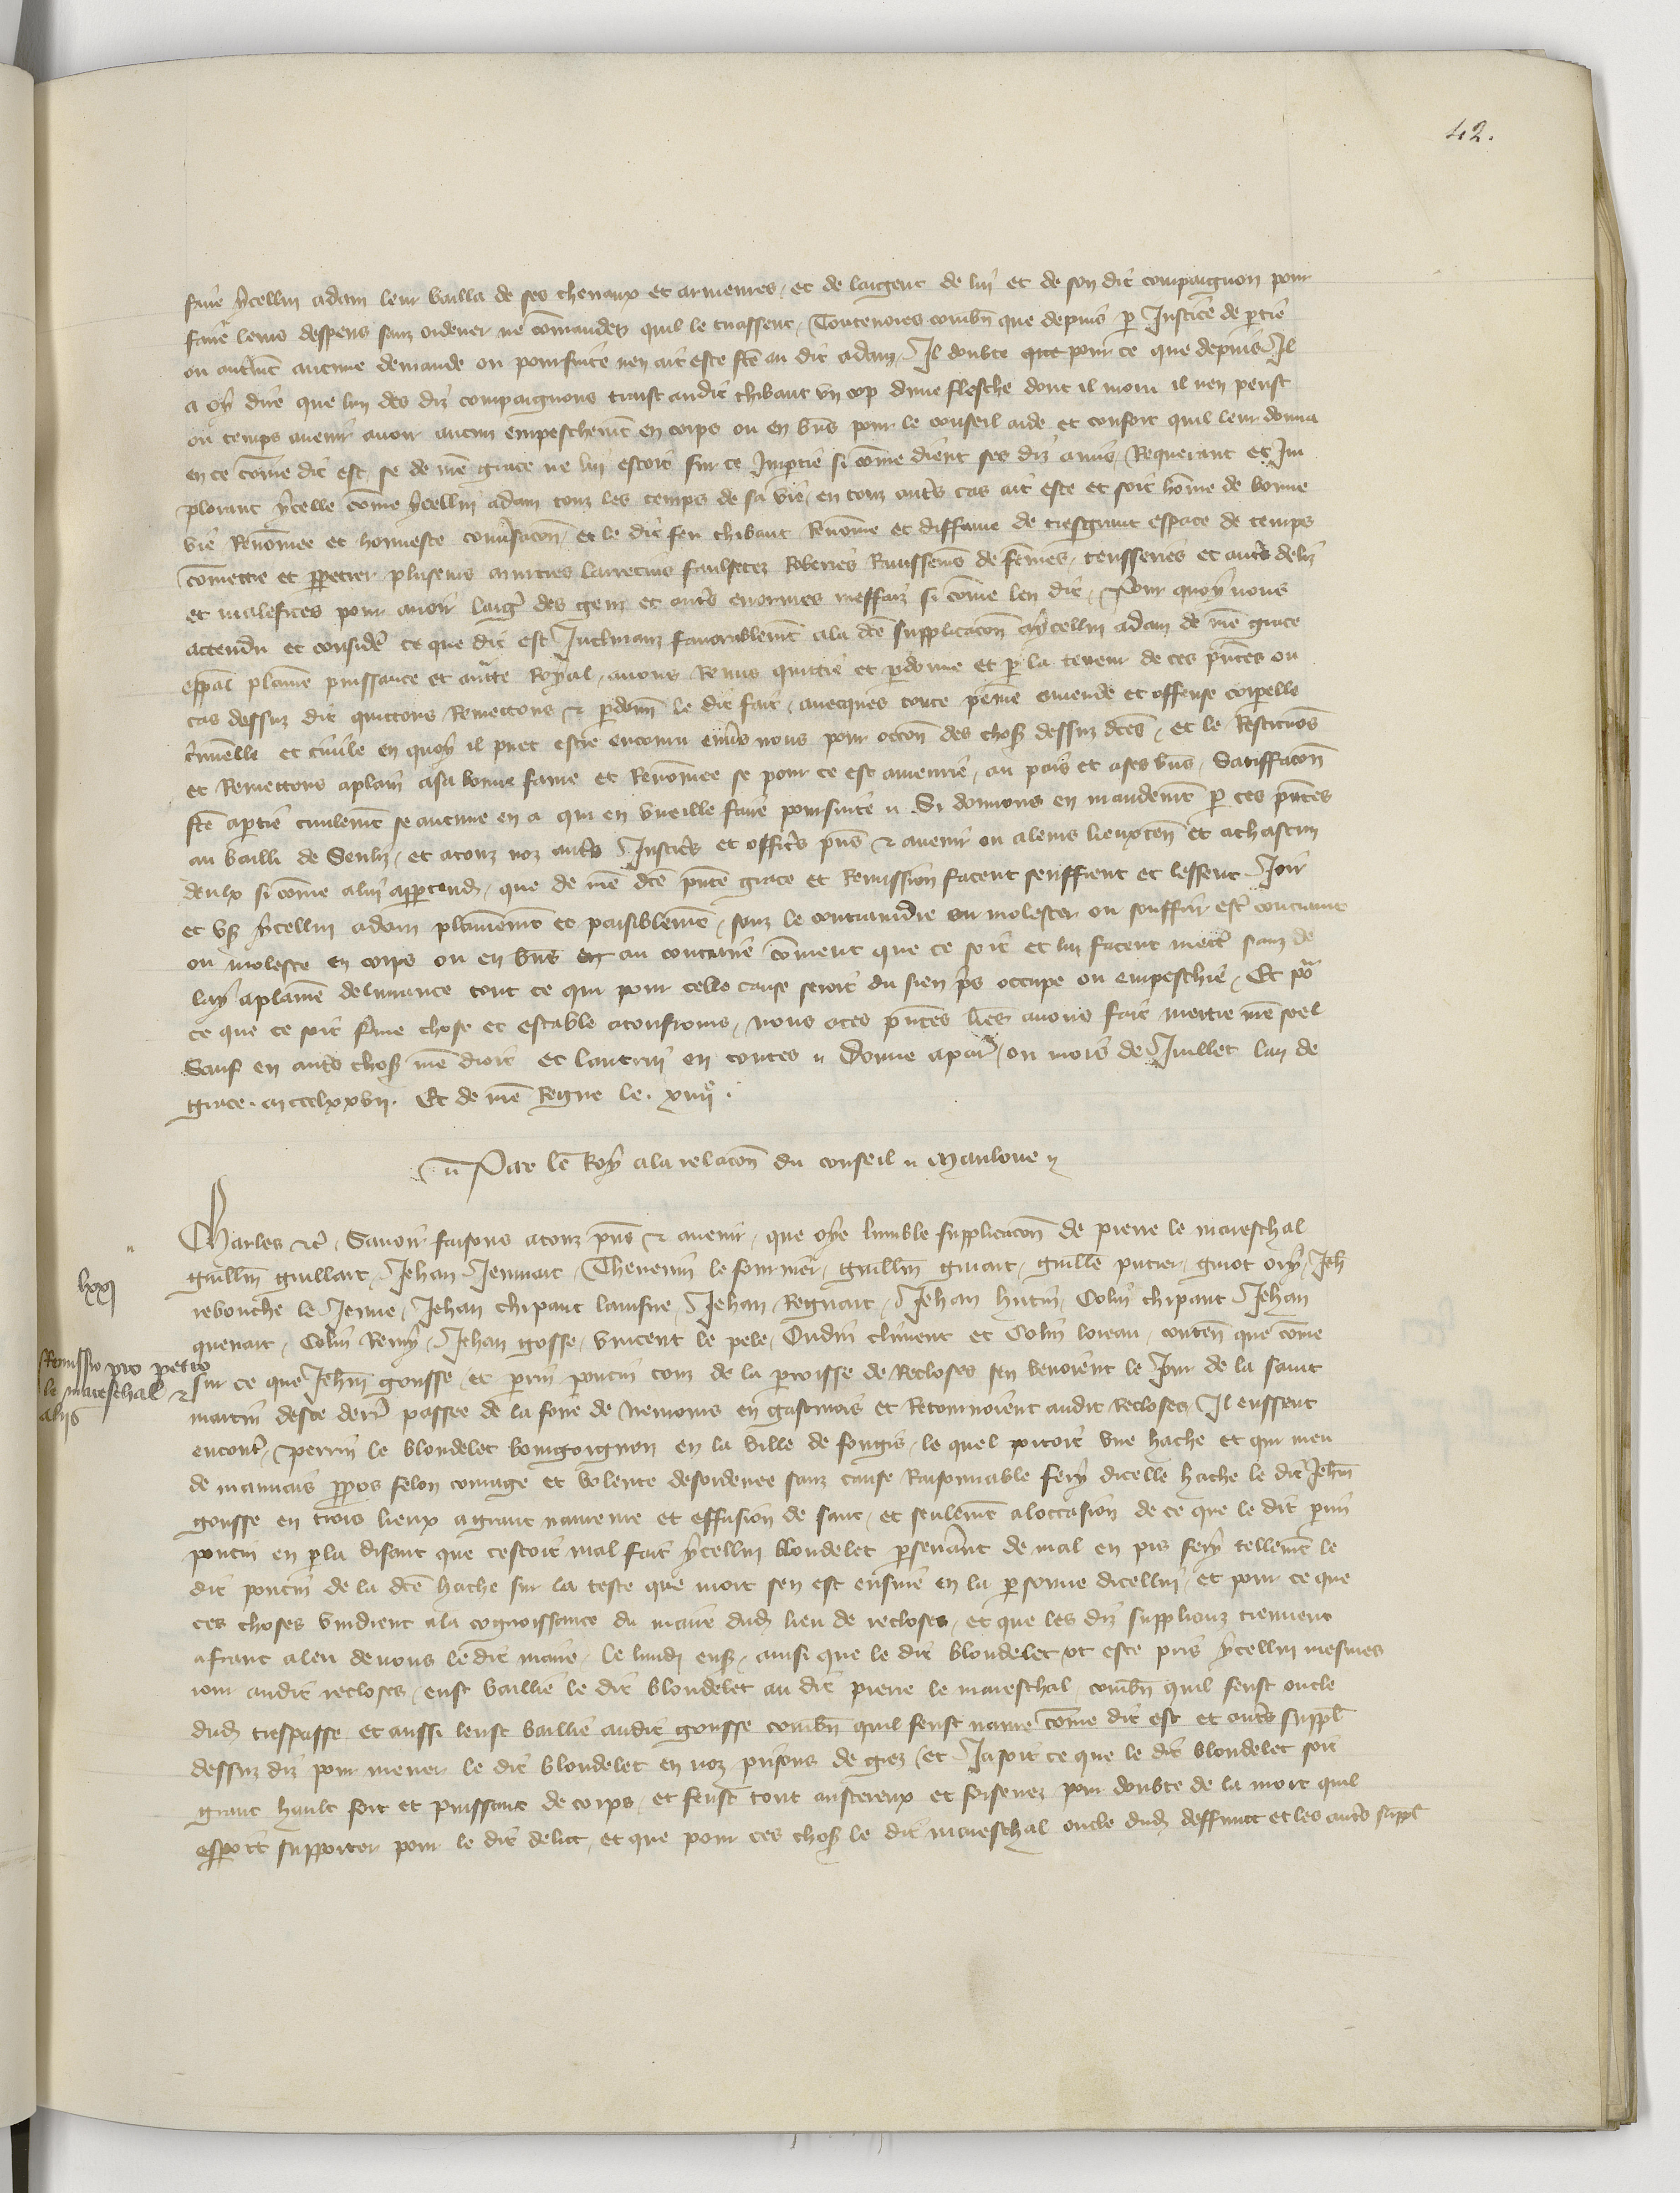 42.
faire ycellui adam leur bailla de ses chevaux et armeures, et de largent de lui et de son dit compaignon pour
faire leurs despens sanz ordener ne comander quil le tuassent, Toutevoies combn que depuis p Justice de ptie
ou autmt aucune demande ou poursuite nen ait este fte au dit adam, Il doubte que pour ce que depuis Il
a oy dire que lun des diz compaignons traist audit thibaut un cop dune flesche dont il mouru il nen peust
ou temps avenir avoir aucun empeschemt en corps ou en bns pour le conseil aide et confort quil leur donna
en ce come dit est, se de nre grace ne lui estoit sur ce Imptie si come dient ses diz amis, Requerant et Im
plorant ycelle come ycellui adam touz les temps de sa vie, en touz autrs cas ait este et soit home de bonne
vie Renomee et honneste convsacon, et le dit feu thibaut Renome et diffame de tresgrant espace de temps
comettre et ppetrer pluseurs murtres larrecins faulsetez Roberies Ravissemens de femes, tensseries et autrs deliz
et malefices pour avoir largt des gens et autrs enormes meffaiz si come len dit, Pour quoy nous
attendu et considere ce que dit est Inclinanz favorablemt ala dte supplicacon aycellui adam de nre grace
especial plaine puissance et autte Royal, avons Remis quittie et pdonne et p la teneur de ces pntes ou
cas dessuz dit quittons Remettons & pdonn le dit fait, avecques toute peine amende et offense corpelle
crimelle et civile en quoy il puet estre encouru envs nous pour occon des chos dessuz dtes, et le Restituons
et Remettons aplain asa bonne fame et Renomee se pour ce est amenrie, au pais et ases bns, Satiffacon
fte aptie civilemt se aucune en a qui en vueille faire poursuite. Si donnons en mandemt p ces pntes
au bailli de Senliz, et atouz noz autrs Justicrs et officrs pns & avenir ou aleurs lieuxten et achascun
deulx si come alui apptendra, que de nre dte pnte grace et Remission facent seuffrent et lessent Joir
et us ycellui adam plainemt et paisiblemt, sanz le contraindre ou molester ou souffrir estre contraint
ou moleste en corps ou en bns au contraire coment que ce soit et lui facent mettre sanz de
lay aplaine delivrance tout ce qui pour celle cause seroit du sien pris occupe ou empeschie, Et por
ce que ce soit ferme chose et estable atousjours, nous aces pntes lres avons fait mettre nre seel
Sauf en autrs chos nre droit et lautrui en toutes. Donne aparis, ou mois de Juillet lan de
grace. m ccclxxvii. Et de nre Regne le. xiiiie.
Par le Roy ala relacon du conseil Manlove
Charles etc, Savoir faisons atouz pns & avenir, que oye lumble supplicacon de pierre le mareschal
guillm guillart, Jehan Jennart, Thevenin le fournier, guillm guiart, guille putier, guiot ory, Jeh
rebouche le Jeune, Jehan chipaut lainsne, Jehan Regnart, Jehan hutin, Colin chipaut, Jehan
quenart, Colin Remy, Jehan gosse, vincent le pele, Oudin climent et Colin loreau, conten que come
sur ce que Jehn gousse, et prin poncin touz de la parroisse de Recloses sen venoient le Jour de la saint
martin deste derr passee de la foire de Nemours en gastinois et Retournoient audit Recloses, Il eussent
encontre, perrin le blondelet bourgoignon en la ville de fougis, le quel portoit une hache et qui meu
de mauvais ppos felon courage et volente desordenee sanz cause Raisonnable fery dicelle hache le dit Jehn
gousse en trois lieux agrant navreure et effusion de sanc, et seulemt aloccasion de ce que le dit prin
poncin en pla disant que cestoit mal fait ycellui blondelet psevrant de mal en pis fery tellemt le
dit poncin de la dte hache sur la teste que mort sen est ensuie en la psonne dicellui, et pour ce que
ces choses vindrent ala cognoissance du maire dud lieu de recloses, et que les diz supplianz tiennent
afranc aleu de nous le dit maire, le lundi ens, ainsi que le dit blondelet ot este pris ycellui mesmes
iour audit recloses, eust baillie le dit blondelet au dit pierre le mareschal, combn quil feust oncle
dud trespasse, et aussi leust baillie audit gousse combn quil feust navre come dit est et autrs suppl
dessuz diz pour mener le dit blondelet en noz prisons de grez, et Ja soit ce que le dit blondelet soit
grant hault fort et puissant de corps, et feust tout austereux et forsenez pour doubte de la mort quil
espoit supporter pour le dit delict, et que pour ces chos le dit mareschal oncle dud deffunct et les autrs suppl
lxxi
Remissio pro petro
le mareschal &
aliis